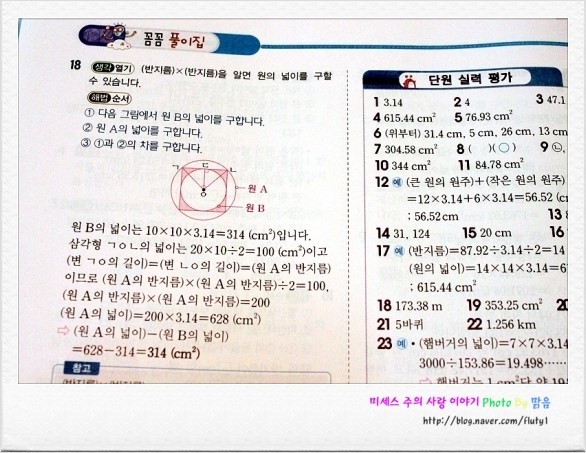 꼼꼼 풀이집
18 생각열기 (반지름)×(반지름)을 알면 원의 넓이를 구할
수 있습니다.
해법순서
① 다음 그림에서 원 B의 넓이를 구합니다.
② 원 A의 넓이를 구합니다.
③ ①과 ②의 차를 구합니다.
ㄱ ㄷ ㄴ
ㅇ
원 A
원 B
원 B의 넓이는 10×10×3.14=314 (cm²)입니다.
삼각형 ㄱㅇㄴ의 넓이는 20×10÷2=100 (cm²)이고
(변 ㄱㅇ의 길이)=(변 ㄴㅇ의 길이)=(원 A의 반지름)
이므로 (원 A의 반지름)×(원 A의 반지름)÷2=100,
(원 A의 반지름)×(원 A의 반지름)=200
(원 A의 넓이)=200×3.14=628 (cm²)
⇨ (원 A의 넓이)-(원 B의 넓이)
=628-314=314 (cm²)
참고
단원 실력 평가
1 3.14 2 4 3 47.1
4 615.44 cm² 5 76.93 cm²
6 (위부터) 31.4 cm, 5 cm, 26 cm, 13 cm
7 304.58 cm² 8 ( )(○) 9 ㉡,
10 344 cm² 11 84.78 cm²
12 예 (큰 원의 원주)+(작은 원의 원주)
=12×3.14+6×3.14=56.52 (c
; 56.52 cm 13
14 31, 124 15 20 cm 16
17 예 (반지름)=87.92÷3.14÷2=14
(원의 넓이)=14×14×3.14=6
; 615.44 cm²
18 173.38 m 19 353.25 cm² 20
21 5바퀴 22 1.256 km
23 예 • (햄버거의 넓이)=7×7×3.14
3000÷153.86=19.498……
⇨ 햄버거는 1 cm²당 약 19
미세스 주의 사랑 이야기 Photo By 맑음
http://blog.naver.com/fluty1